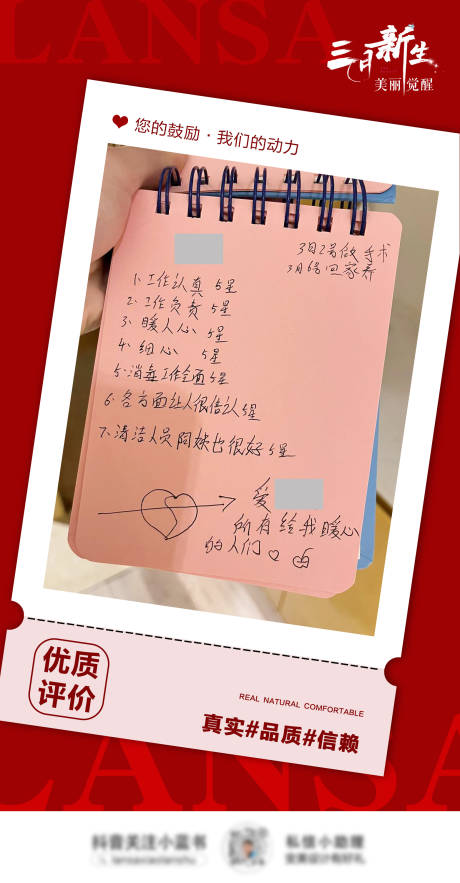 LANSA
三月新生
美丽觉醒
您的鼓励·我们的动力
3月2号做手术
3月6号回家养
1、工作认真 5星
2、工作负责 5星
3、暖人心 5星
4、细心 5星
5、消毒工作全面5星
6、各方面让人很信认5星
7、清洁人员阿妹也很好5星
爱
所有给我暖心
的人们
优质
评价
REAL NATURAL COMFORTABLE
真实#品质#信赖
LANSA
抖音关注小蓝书
私信小助理